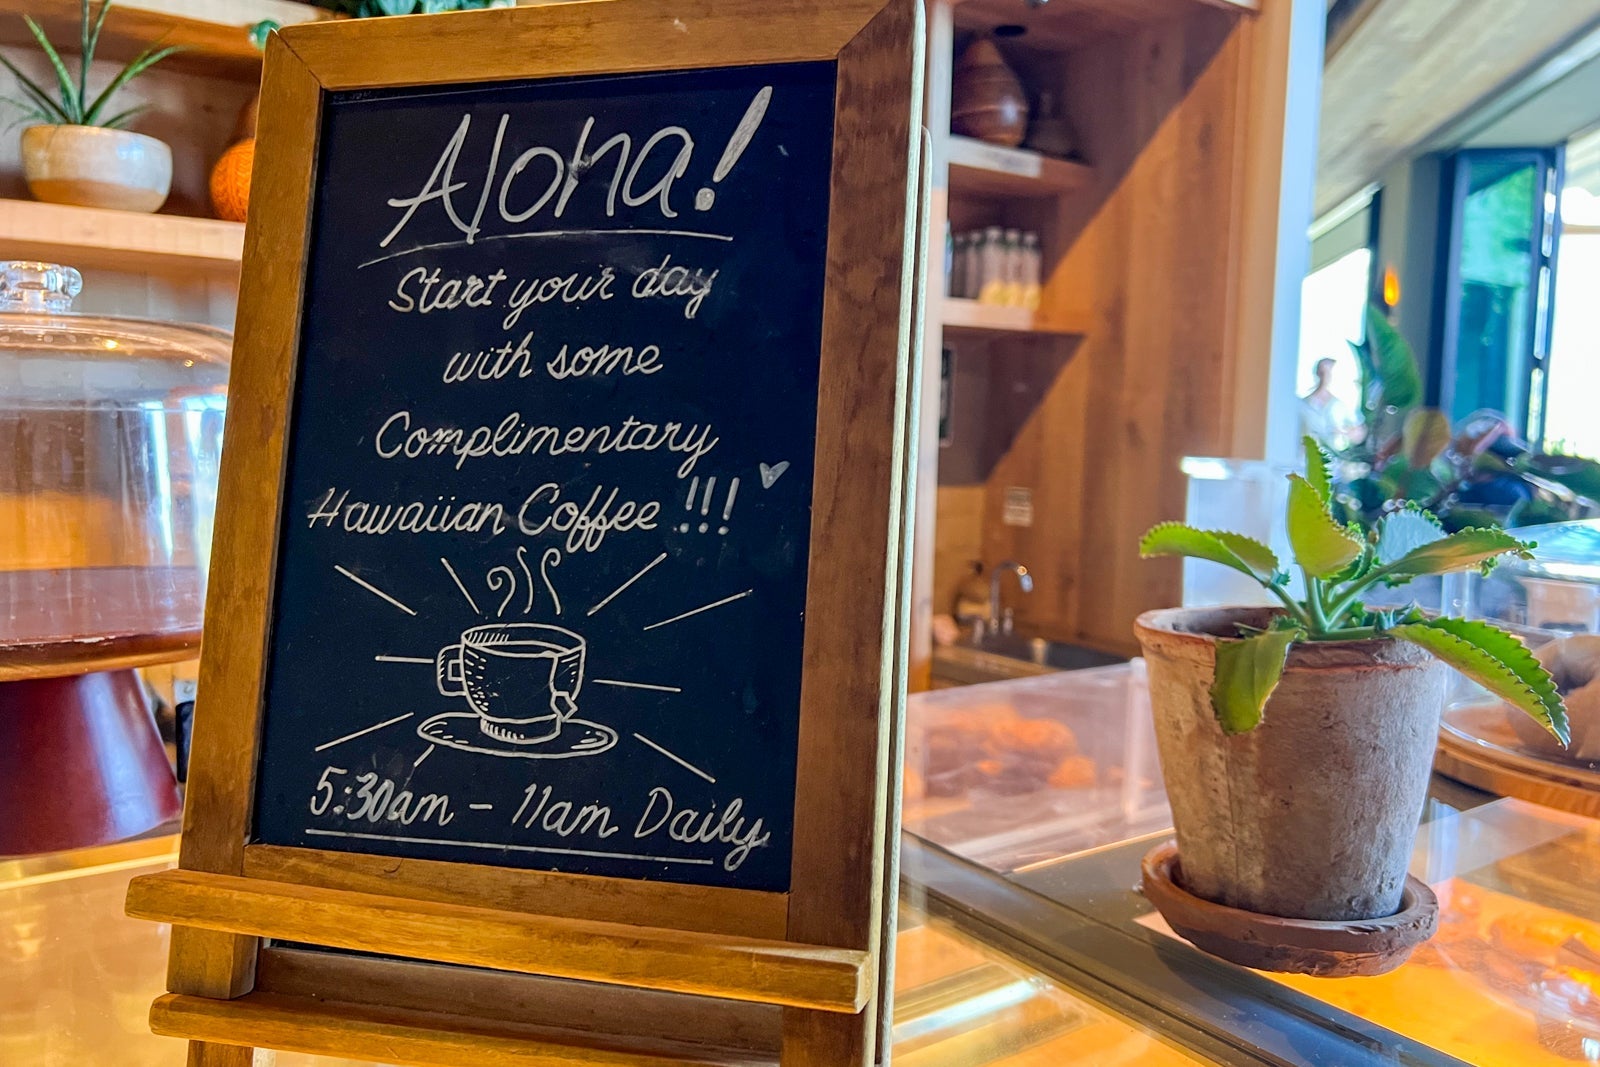 Aloha!
Start your day
with some
Complimentary
Hawaiian Coffee !!!
5:30am - 11am Daily